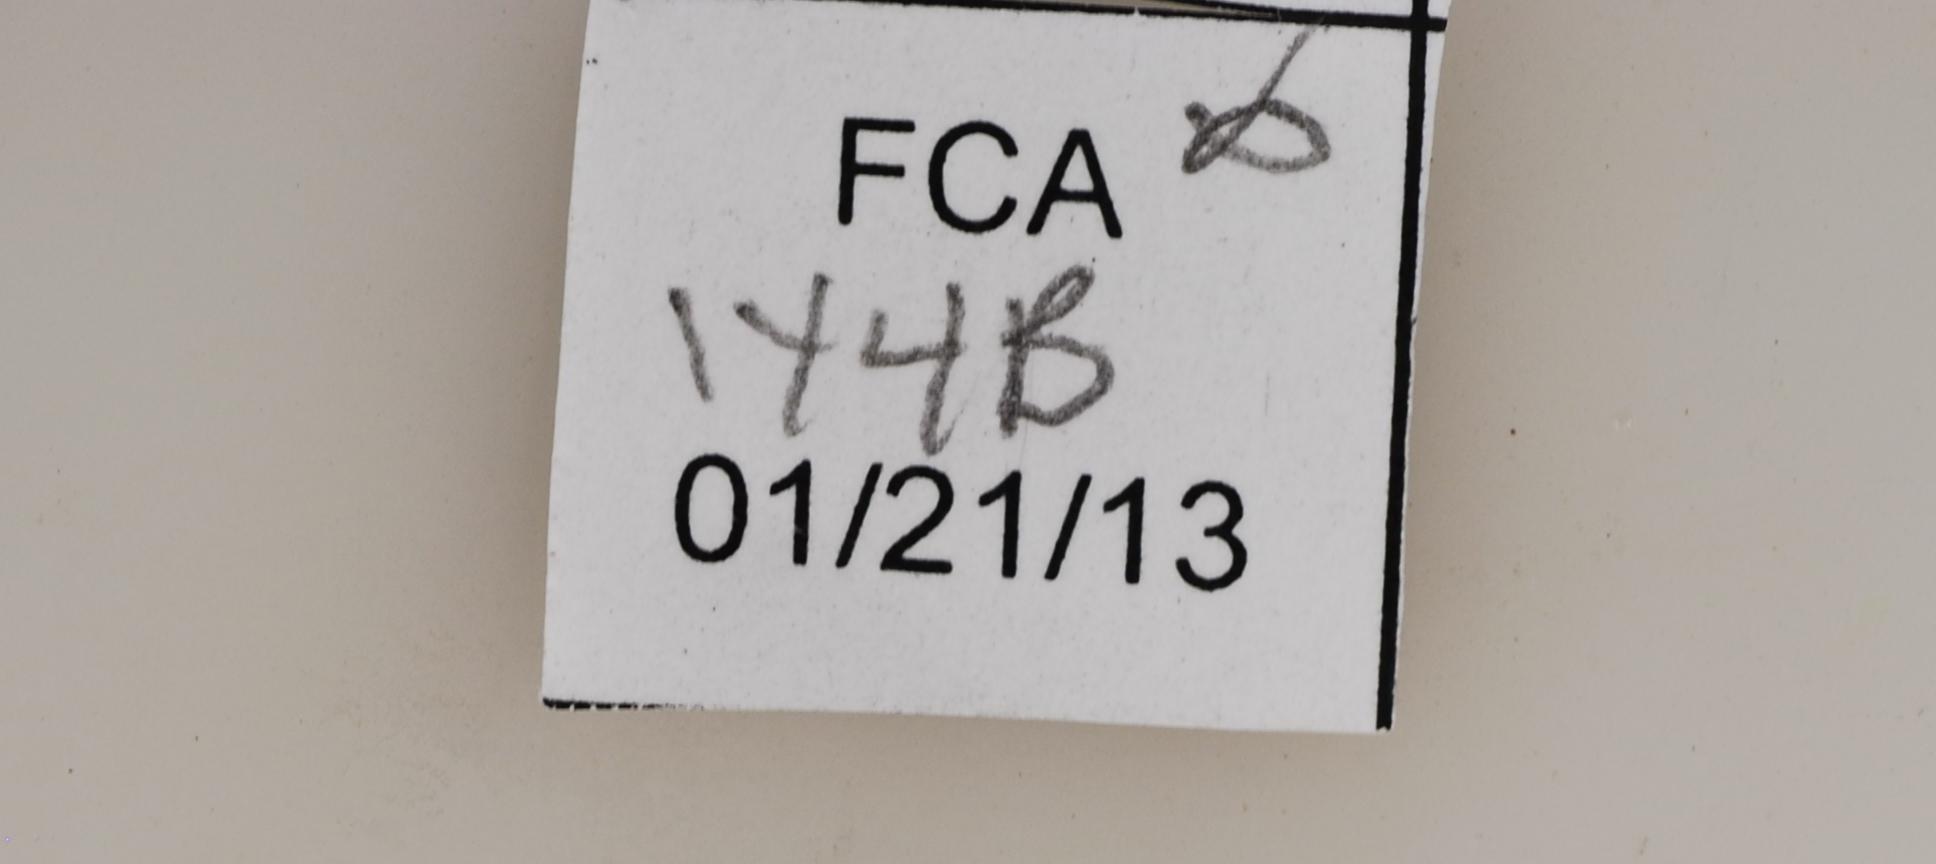 FCA
144B
01/21/13